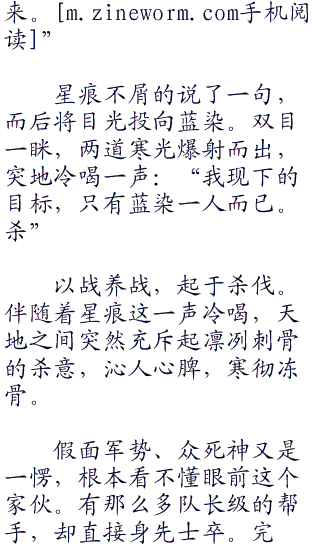 来。[m.zineworm.com手机阅
读]”
星痕不屑的说了一句，
而后将目光投向蓝染。双目
一眯，两道寒光爆射而出，
突地冷喝一声：“我现下的
目标，只有蓝染一人而已。
杀”
以战养战，起于杀伐。
伴随着星痕这一声冷喝，天
地之间突然充斥起凛冽刺骨
的杀意，沁人心脾，寒彻冻
骨。
假面军势、众死神又是
一愣，根本看不懂眼前这个
家伙。有那么多队长级的帮
手，却直接身先士卒。完